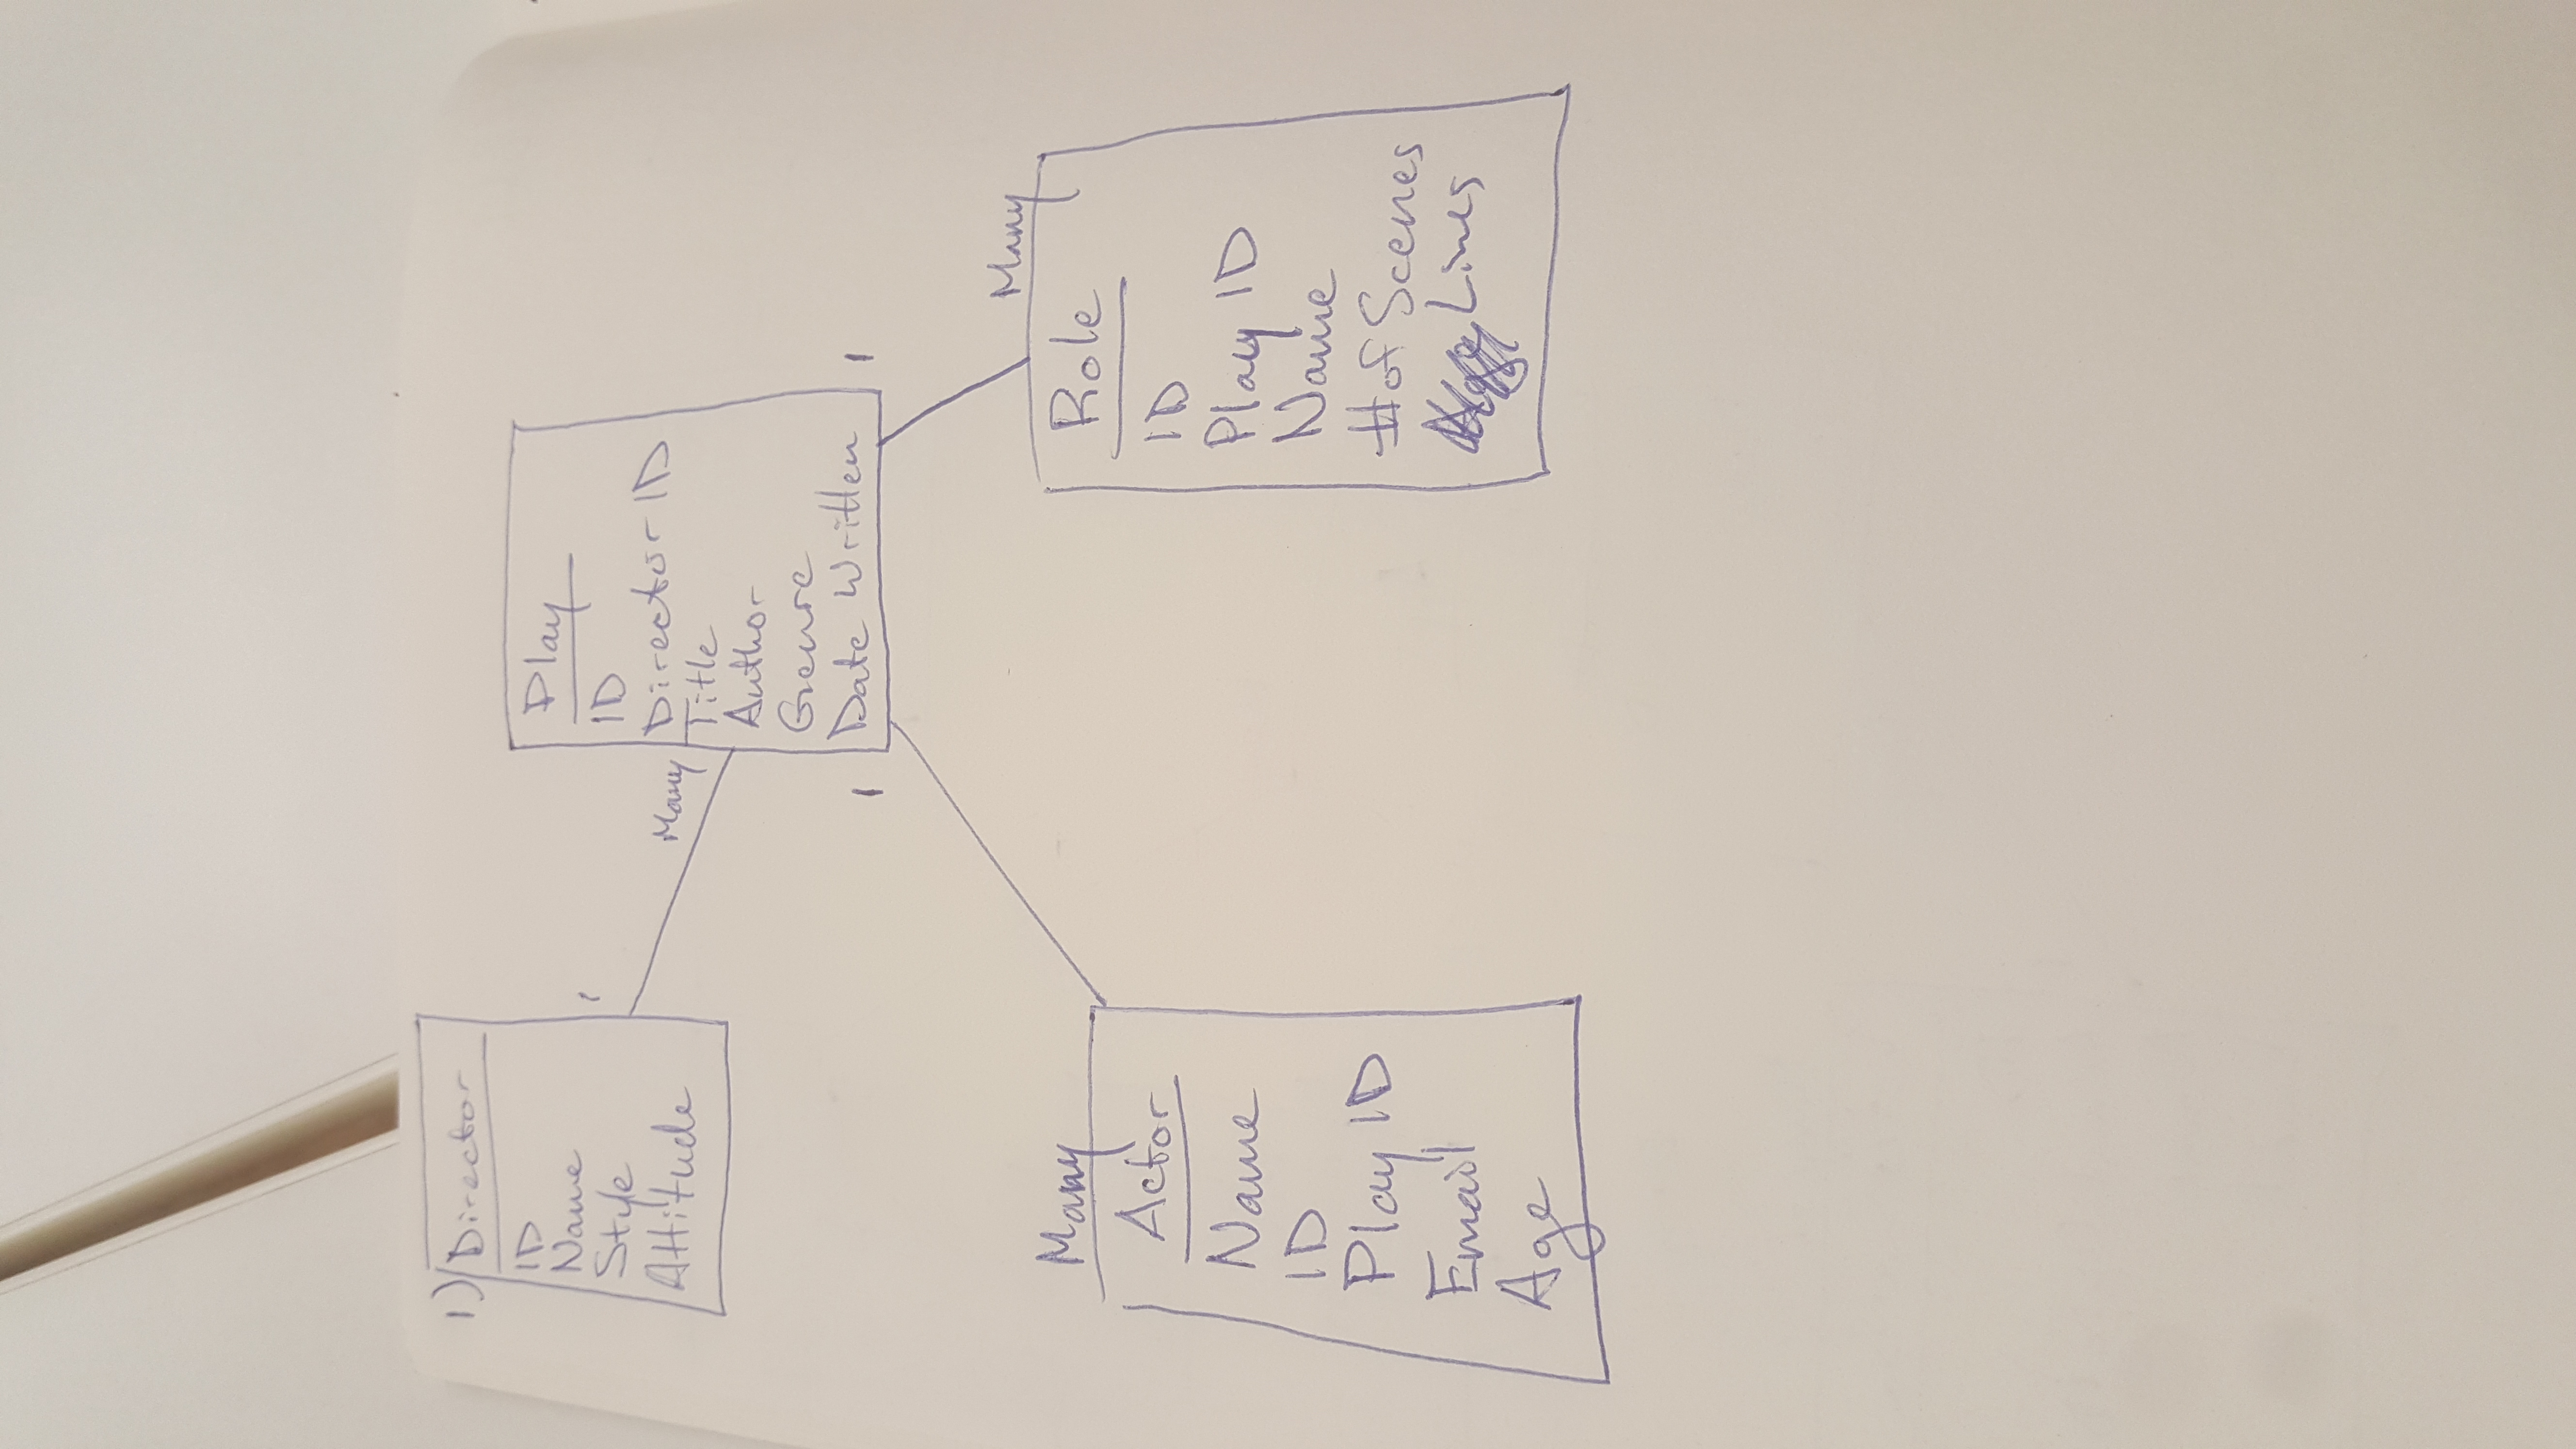 1) Director
ID
Name
Style
Attitude
1
Many
Play
ID
Director ID
Title
Author
Genre
Date Written
1
1
Many
Actor
Name
ID
Play ID
Email
Age
Many
Role
ID
Play ID
Name
# of Scenes
Lines